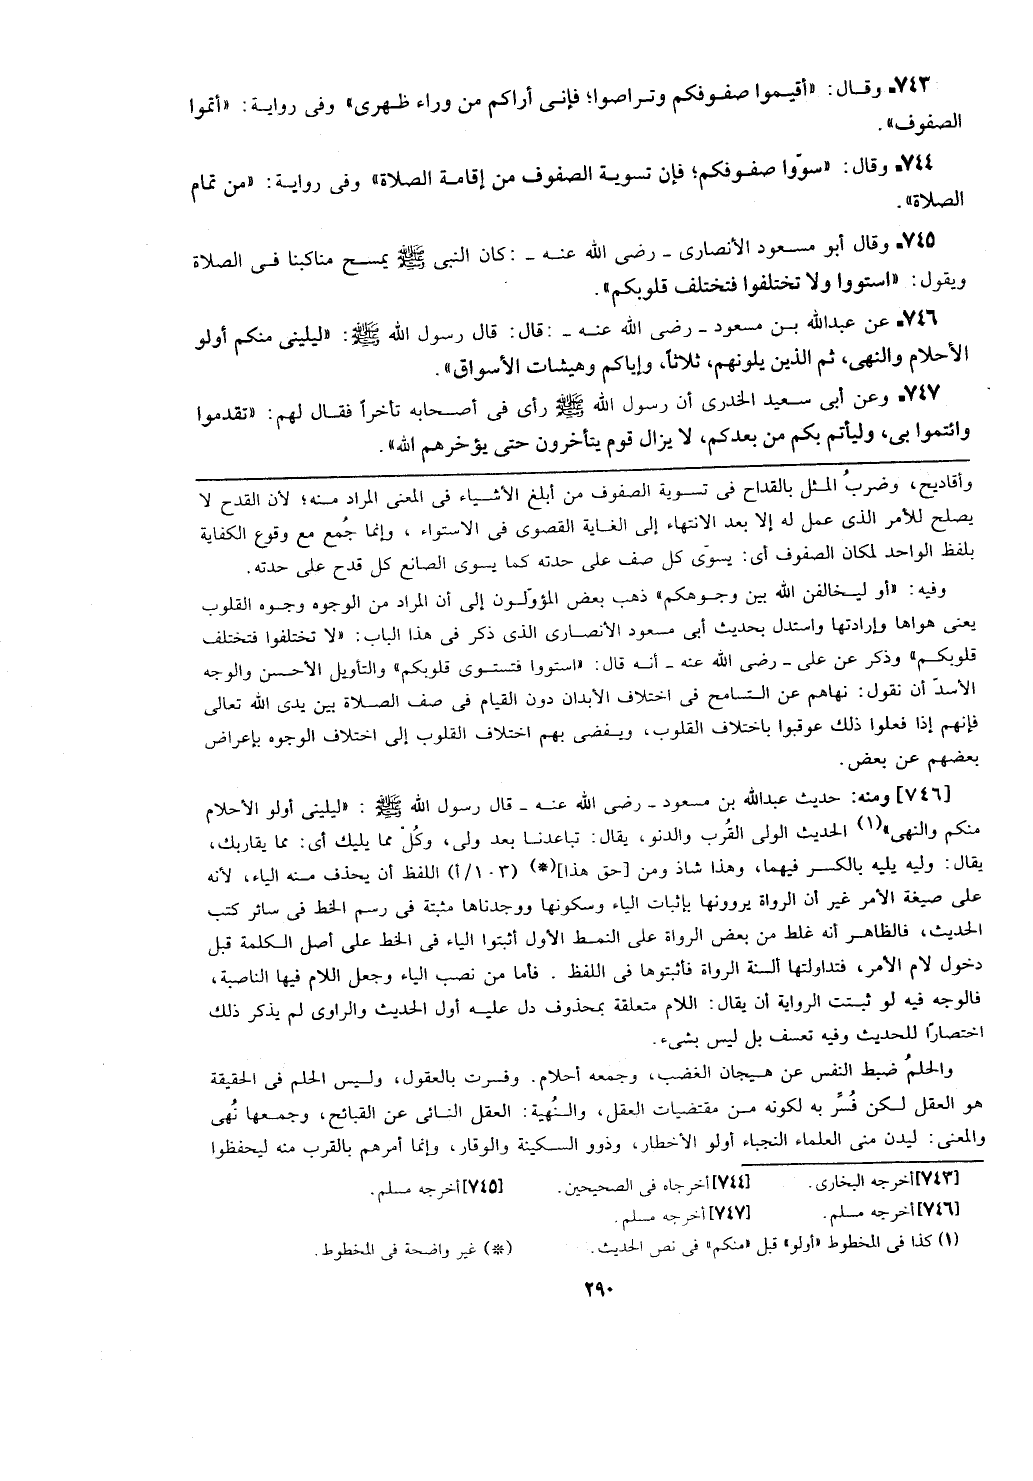 ٧٤٣ـ وقـال: «أقيـموا صفـوفكم وتـراصوا؛ فإنـى أراكم من وراء ظـهرى» وفى روايـة: «أتموا
الصفوف».
٧٤٤ـ وقال: «سوّوا صفـوفكم؛ فإن تسويـة الصفوف من إقامـة الصلاة» وفى روايـة: «من تمام
الصلاة».
٧٤٥ـ وقال أبو مسـعود الأنصارى ـ رضى الله عنـه ـ :كان النبى ﷺ يمسـح مناكبنا فـى الصلاة
ويقول: «استووا ولا تختلفوا فتختلف قلوبكم».
٧٤٦ـ عن عبدالله بـن مسعود ـ رضى الله عنـه ـ :قال: قال رسول الله ﷺ: «ليلينى منكم أولو
الأحلام والنهى، ثم الذين يلونهم، ثلاثاً، وإياكم وهيشات الأسواق».
٧٤٧ـ وعن أبى سـعيد الخدرى أن رسول الله ﷺ رأى فى أصـحابه تأخراً فقـال لهم: «تقدموا
وائتموا بى، وليأتم بكم من بعدكم، لا يزال قوم يتأخرون حتى يؤخرهم الله».
وأقاديح، وضربُ المـثل بالقداح فى تسوية الصفوف من أبلغ الأشـياء فى المعنى المراد مـنه؛ لأن القدح لا
يصلح للأمر الذى عمل له إلا بعد الانتهاء إلى الغاية القصوى فى الاستواء ، وإنما جُمع مع وقوع الكفاية
بلفظ الواحد لمكان الصفوف أى: يسوّى كل صف على حدته كما يسوى الصانع كل قدح على حدته.
وفيه: «أو ليـخالفن الله بين وجـوهكم» ذهب بعض المؤوّلـون إلى أن المراد من الوجوه وجـوه القلوب
يعنى هواها وإرادتها واستدل بحديث أبى مسعود الأنصـارى الذى ذكر فى هذا الباب: «لا تختلفوا فتختلف
قلوبكـم» وذكر عن على ـ رضى الله عنه ـ أنـه قال: «استووا فتستوى قلوبكم» والتأويل الأحسـن والوجه
الأسدّ أن نقول: نهاهم عن التـسامح فى اختلاف الأبدان دون القيام فى صف الصـلاة بين يدى الله تعالى
فإنهم إذا فعلوا ذلك عوقبوا باختلاف القلوب، ويـفضى بهم اختلاف القلوب إلى اختلاف الوجوه بإعراض
بعضهم عن بعض.
[٧٤٦] ومنه: حديث عبدالله بن مسعود ـ رضى الله عنـه ـ قال رسول الله ﷺ : «ليلينى أولو الأحلام
منكم والنهى»(١) الحديث الولى القُرب والدنو، يقال: تباعدنـا بعد ولى، وكُلْ مما يليك أى: مما يقاربك،
يقال: وليه يليه بالكسـر فيهما، وهذا شاذ ومن [حق هذا](*) (١٠٣/أ) اللفظ أن يحذف منـه الياء، لأنه
على صيغة الأمر غير أن الرواة يروونها بإثبات الياء وسكونها ووجدناها مثبتة فى رسم الخط فى سائر كتب
الحديث، فالظاهـر أنه غلط من بعض الرواة على النمـط الأول أثبتوا الياء فى الخط على أصل الـكلمة قبل
دخول لام الأمر، فتداولتها ألسنة الرواة فأثبتوها فى اللفظ . فأما من نصب الياء وجعل اللام فيها الناصبة،
فالوجه فيه لو ثبـتت الرواية أن يقال: اللام متعلقة بمحذوف دل عليـه أول الحديث والراوى لم يذكر ذلك
اختصارًا للحديث وفيه تعسف بل ليس بشىء.
والحلمُ ضبط النفس عن هيـجان الغضب، وجمعه أحلام. وفسرت بالعقول، وليـس الحلم فى الحقيقة
هو العقل لـكن فُسِّر به لكونه مـن مقتضيات العقل، والـنُهية: العقل النـائى عن القبائح، وجمـعها نُهى
والمعنى: ليدن منى العلماء النجباء أولو الأخطار، وذوو السـكينة والوقار، وإنما أمرهم بالقرب منه ليحفظوا
[٧٤٣] أخرجه البخارى. [٧٤٤] أخرجاه فى الصحيحين. [٧٤٥] أخرجه مسلم.
[٧٤٦] أخرجه مسلم. [٧٤٧] أخرجه مسلم.
(١) كذا فى المخطوط «أولو» قبل «منكم» فى نص الحديث. (*) غير واضحة فى المخطوط.
٢٩٠